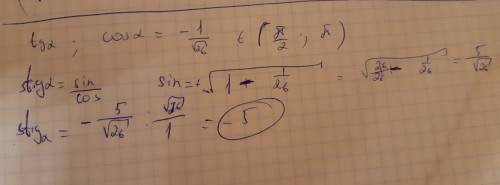 tgα ; cosα = -1/√26 ∈ (π/2 ; π)
tgα = sin/cos sin = +√(1 - 1/26) = √(26/26 - 1/26) = 5/√26
tgα = -5/√26 : √26/1 = -5